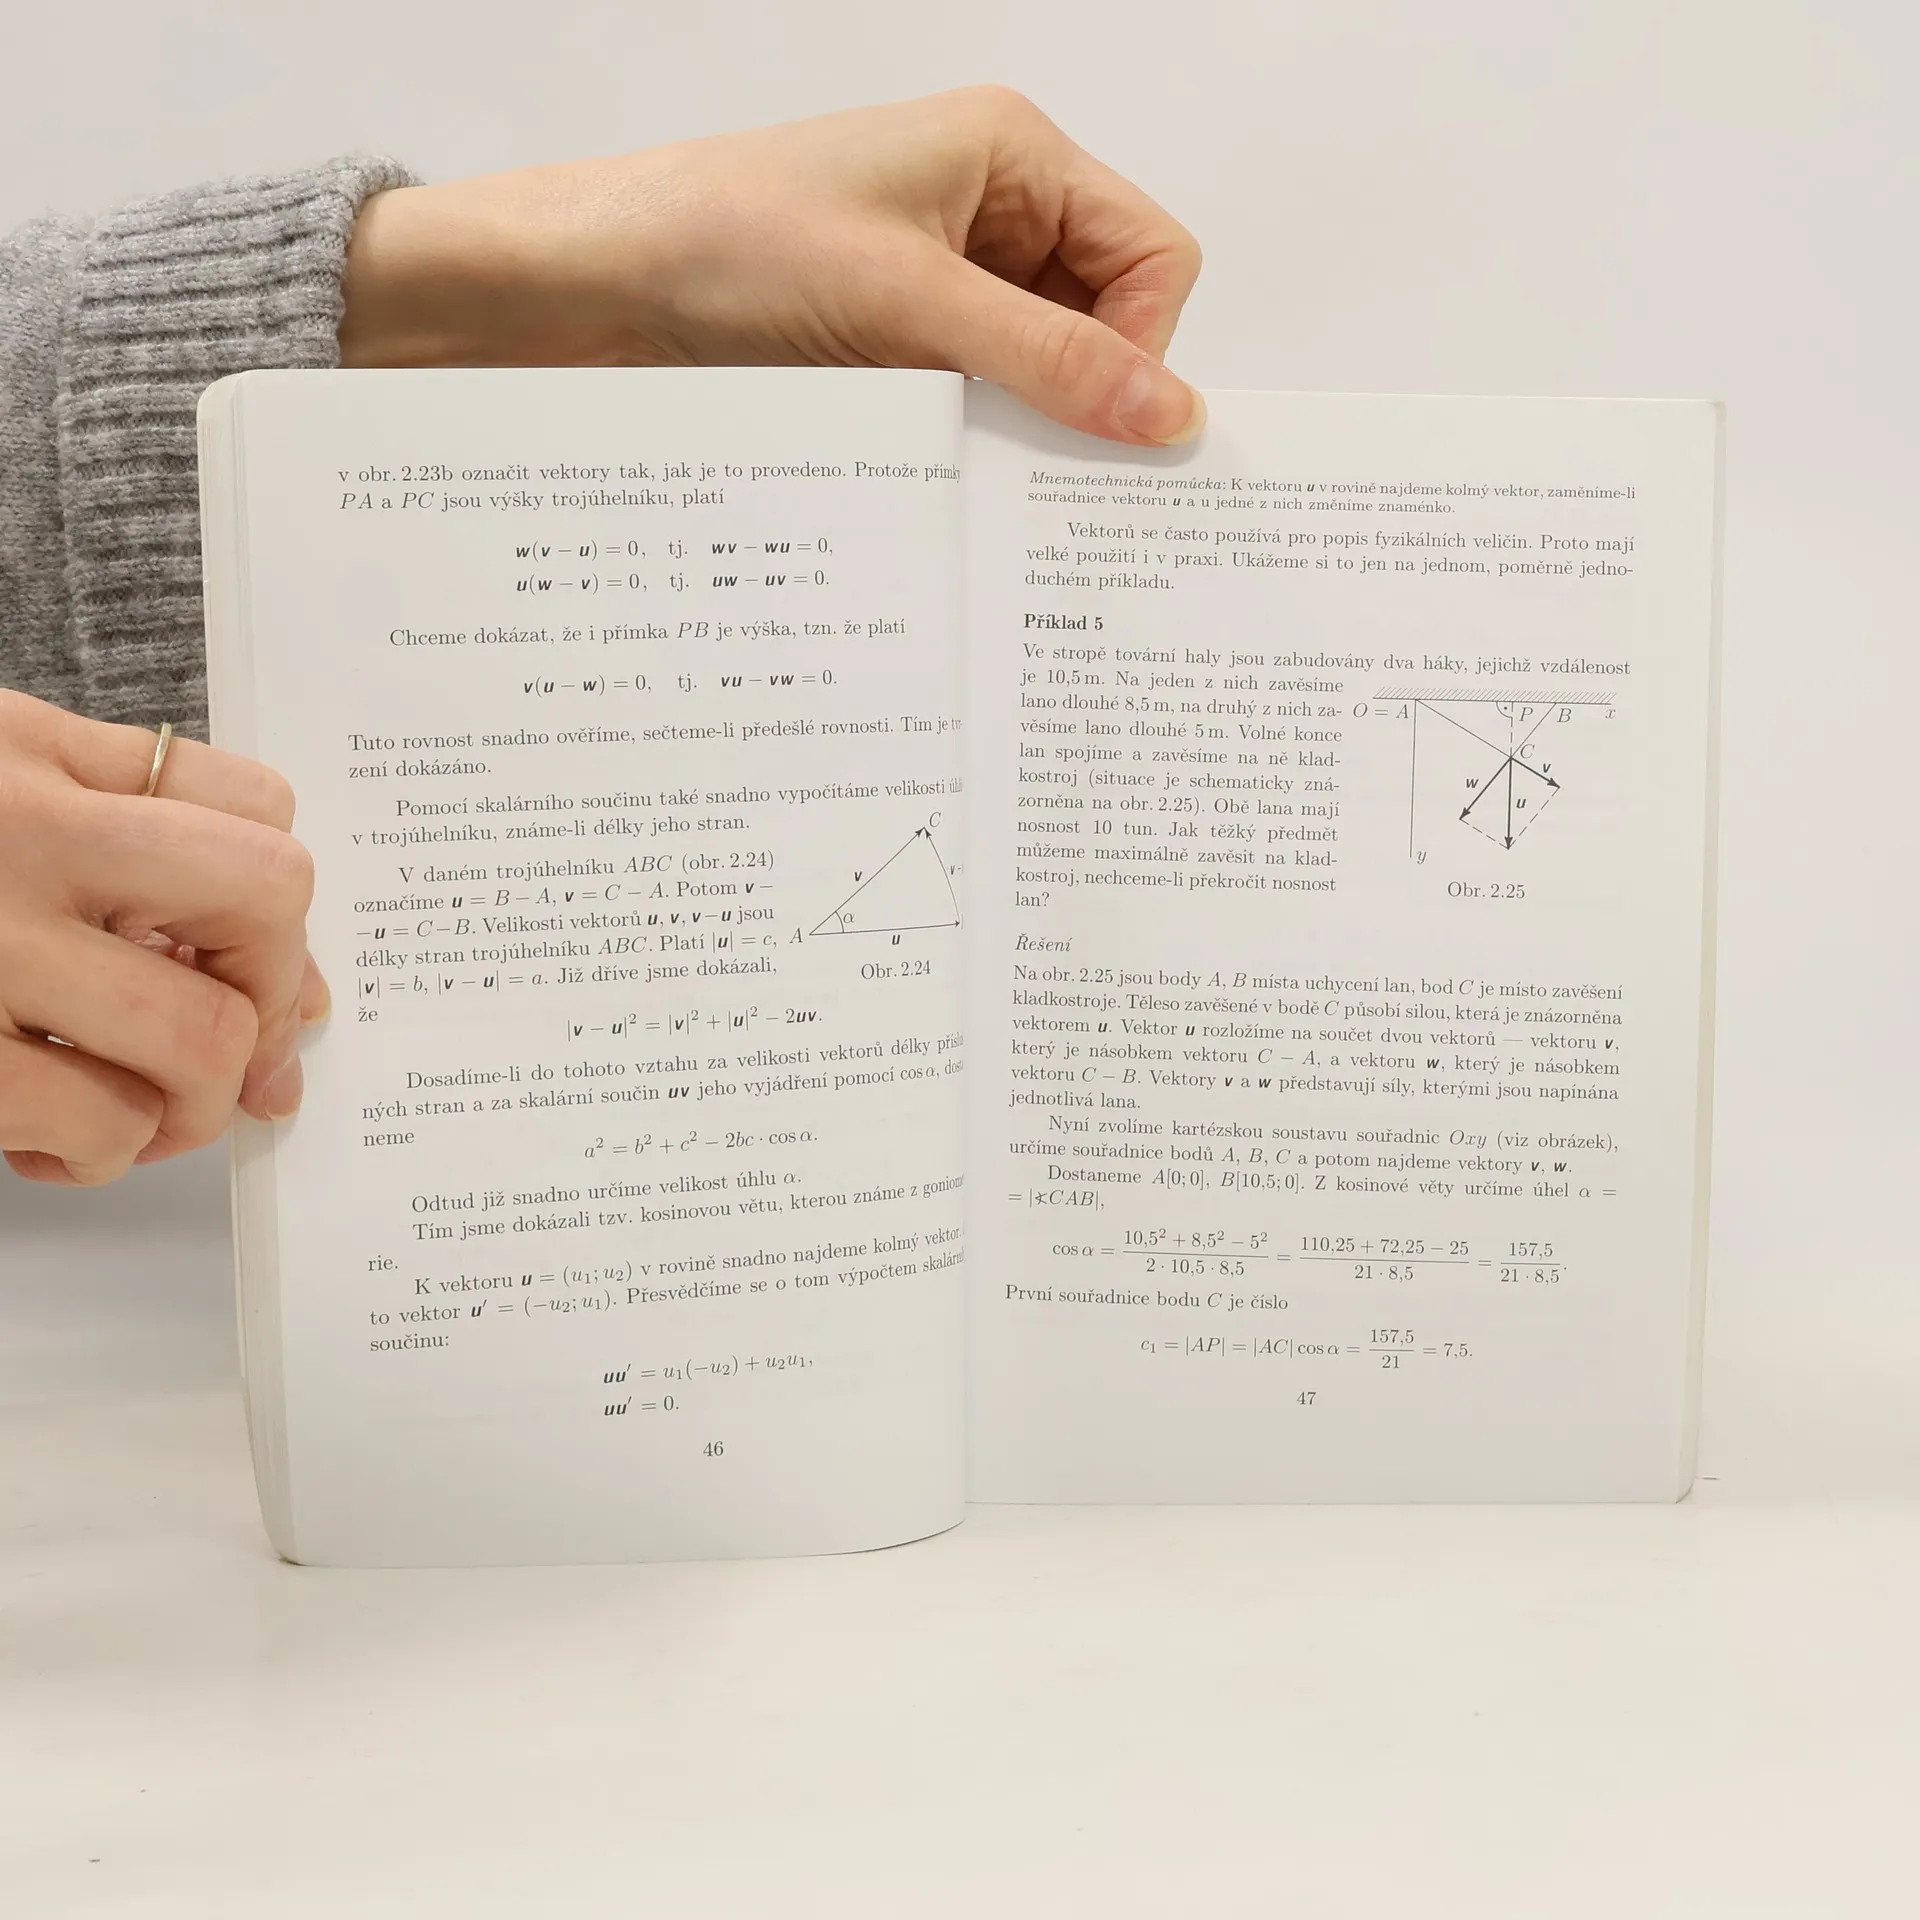 v obr. 2.23b označit vektory tak, jak je to provedeno. Protože přímky
PA a PC jsou výšky trojúhelníku, platí
w(v − u) = 0, tj. wv − wu = 0,
u(w − v) = 0, tj. uw − uv = 0.
Chceme dokázat, že i přímka PB je výška, tzn. že platí
v(u − w) = 0, tj. vu − vw = 0.
Tuto rovnost snadno ověříme, sečteme-li předešlé rovnosti. Tím je
zení dokázáno.
Pomocí skalárního součinu také snadno vypočítáme velikosti
v trojúhelníku, známe-li délky jeho stran.
V daném trojúhelníku ABC (obr. 2.24)
označíme u = B − A, v = C − A. Potom v −
− u = C − B. Velikosti vektorů u, v, v − u jsou
délky stran trojúhelníku ABC. Platí |u| = c,
|v| = b, |v − u| = a. Již dříve jsme dokázali,
že
C
v
v −
α
A
u
Obr. 2.24
|v − u|² = |v|² + |u|² − 2uv.
Dosadíme-li do tohoto vztahu za velikosti vektorů délky
ných stran a za skalární součin uv jeho vyjádření pomocí cos α,
neme
a² = b² + c² − 2bc · cos α.
Odtud již snadno určíme velikost úhlu α.
Tím jsme dokázali tzv. kosinovou větu, kterou známe z
rie.
K vektoru u = (u₁; u₂) v rovině snadno najdeme kolmý vektor.
to vektor u′ = (−u₂; u₁). Přesvědčíme se o tom výpočtem
součinu:
uu′ = u₁(−u₂) + u₂u₁,
uu′ = 0.
46
Mnemotechnická pomůcka: K vektoru u v rovině najdeme kolmý vektor, zaměníme-li
souřadnice vektoru u a u jedné z nich změníme znaménko.
Vektorů se často používá pro popis fyzikálních veličin. Proto mají
velké použití i v praxi. Ukážeme si to jen na jednom, poměrně jedno-
duchém příkladu.
Příklad 5
Ve stropě tovární haly jsou zabudovány dva háky, jejichž vzdálenost
je 10,5 m. Na jeden z nich zavěsíme
lano dlouhé 8,5 m, na druhý z nich za-
věsíme lano dlouhé 5 m. Volné konce
lan spojíme a zavěsíme na ně klad-
kostroj (situace je schematicky zná-
zorněna na obr. 2.25). Obě lana mají
nosnost 10 tun. Jak těžký předmět
můžeme maximálně zavěsit na klad-
kostroj, nechceme-li překročit nosnost
lan?
O = A P B x
C
v
w
u
y
Obr. 2.25
Řešení
Na obr. 2.25 jsou body A, B místa uchycení lan, bod C je místo zavěšení
kladkostroje. Těleso zavěšené v bodě C působí silou, která je znázorněna
vektorem u. Vektor u rozložíme na součet dvou vektorů — vektoru v,
který je násobkem vektoru C − A, a vektoru w, který je násobkem
vektoru C − B. Vektory v a w představují síly, kterými jsou napínána
jednotlivá lana.
Nyní zvolíme kartézskou soustavu souřadnic Oxy (viz obrázek),
určíme souřadnice bodů A, B, C a potom najdeme vektory v, w.
Dostaneme A[0; 0], B[10,5; 0]. Z kosinové věty určíme úhel α =
= |∢CAB|,
cos α = (10,5² + 8,5² − 5²)/(2 · 10,5 · 8,5) = (110,25 + 72,25 − 25)/(21 · 8,5) = 157,5/(21 · 8,5).
První souřadnice bodu C je číslo
c₁ = |AP| = |AC| cos α = 157,5/21 = 7,5.
47